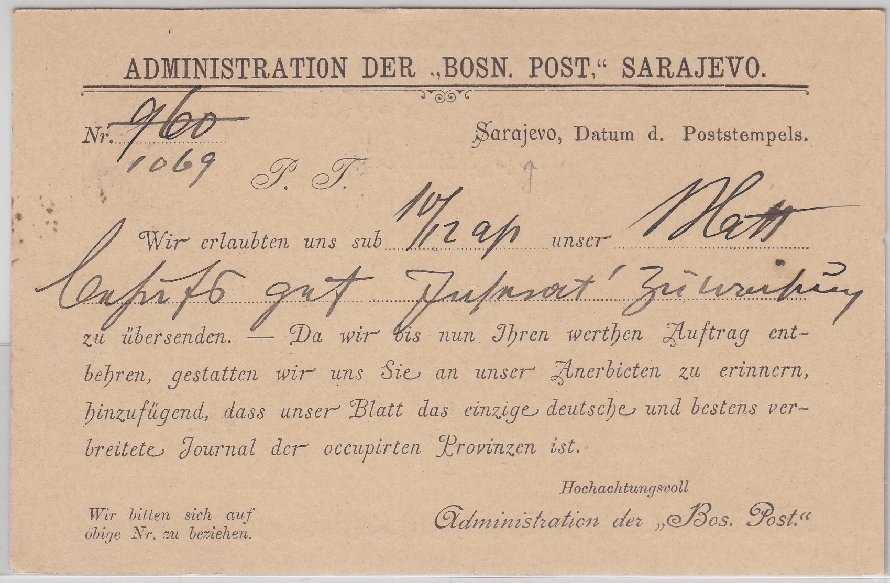 ADMINISTRATION DER „BOSN. POST,“ SARAJEVO.
Nr. 960
1069
Sarajevo, Datum d. Poststempels.
P. T.
Wir erlaubten uns sub 10/12 unser Blatt
behufs gef. Inserat Zuweisung
zu übersenden. — Da wir bis nun Ihren werthen Auftrag ent-
behren, gestatten wir uns Sie an unser Anerbieten zu erinnern,
hinzufügend, dass unser Blatt das einzige deutsche und bestens ver-
breitete Journal der occupirten Provinzen ist.
Hochachtungsvoll
Administration der „Bos. Post.“
Wir bitten sich auf
obige Nr. zu beziehen.